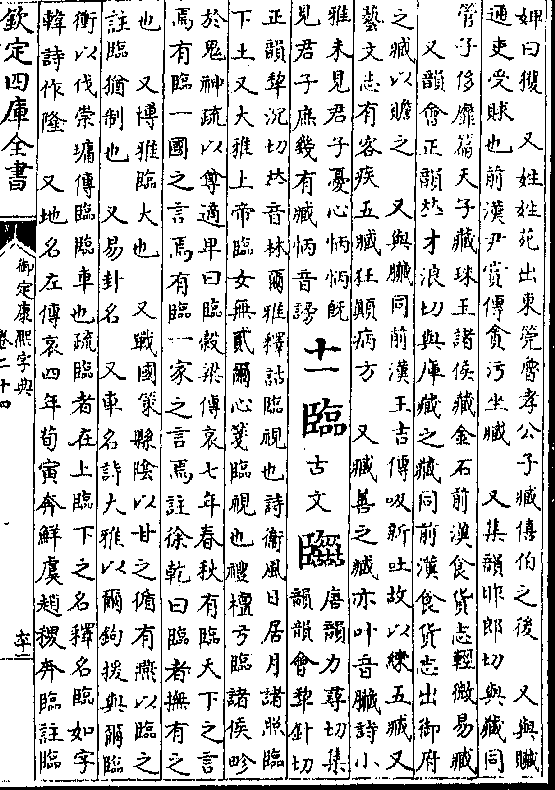 婢曰獲　又姓姓苑出東筦魯孝公子臧僖伯之後　又與贓
通吏受賕也前漢尹賞傳貪污坐臧　又集韻昨郎切與藏同
管子侈靡篇天子藏珠玉諸侯藏金石前漢食貨志輕微易臧
又韻會正韻𠀤才浪切與庫藏之藏同前漢食貨志出御府
之臧以贍之　又與臟同前漢王吉傳吸新吐故以練五臧又
藝文志有客疾五臧狂顛病方　又臧善之臧亦叶音臟詩小
雅未見君子憂心怲怲旣
見君子庶幾有臧怲音謗
十一
臨
古文
唐韻力尋切集
韻韻會犂針切
正韻犂沉切𠀤音林爾雅釋詁臨視也詩衞風日居月諸照臨
下土又大雅上帝臨女無貳爾心箋臨視也禮檀弓臨諸侯畛
於鬼神疏以尊適卑曰臨穀梁傳哀七年春秋有臨天下之言
焉有臨一國之言焉有臨一家之言焉註徐乾曰臨者撫有之
也　又博雅臨大也　又戰國策縣陰以甘之循有燕以臨之
註臨猶制也　又易卦名　又車名詩大雅以爾鉤援與爾臨
衝以伐崇墉傳臨臨車也疏臨者在上臨下之名釋名臨如字
韓詩作隆　又地名左傳哀四年荀寅奔鮮虞趙稷奔臨註臨
欽定四庫全書
御定康熙字典
卷二十四